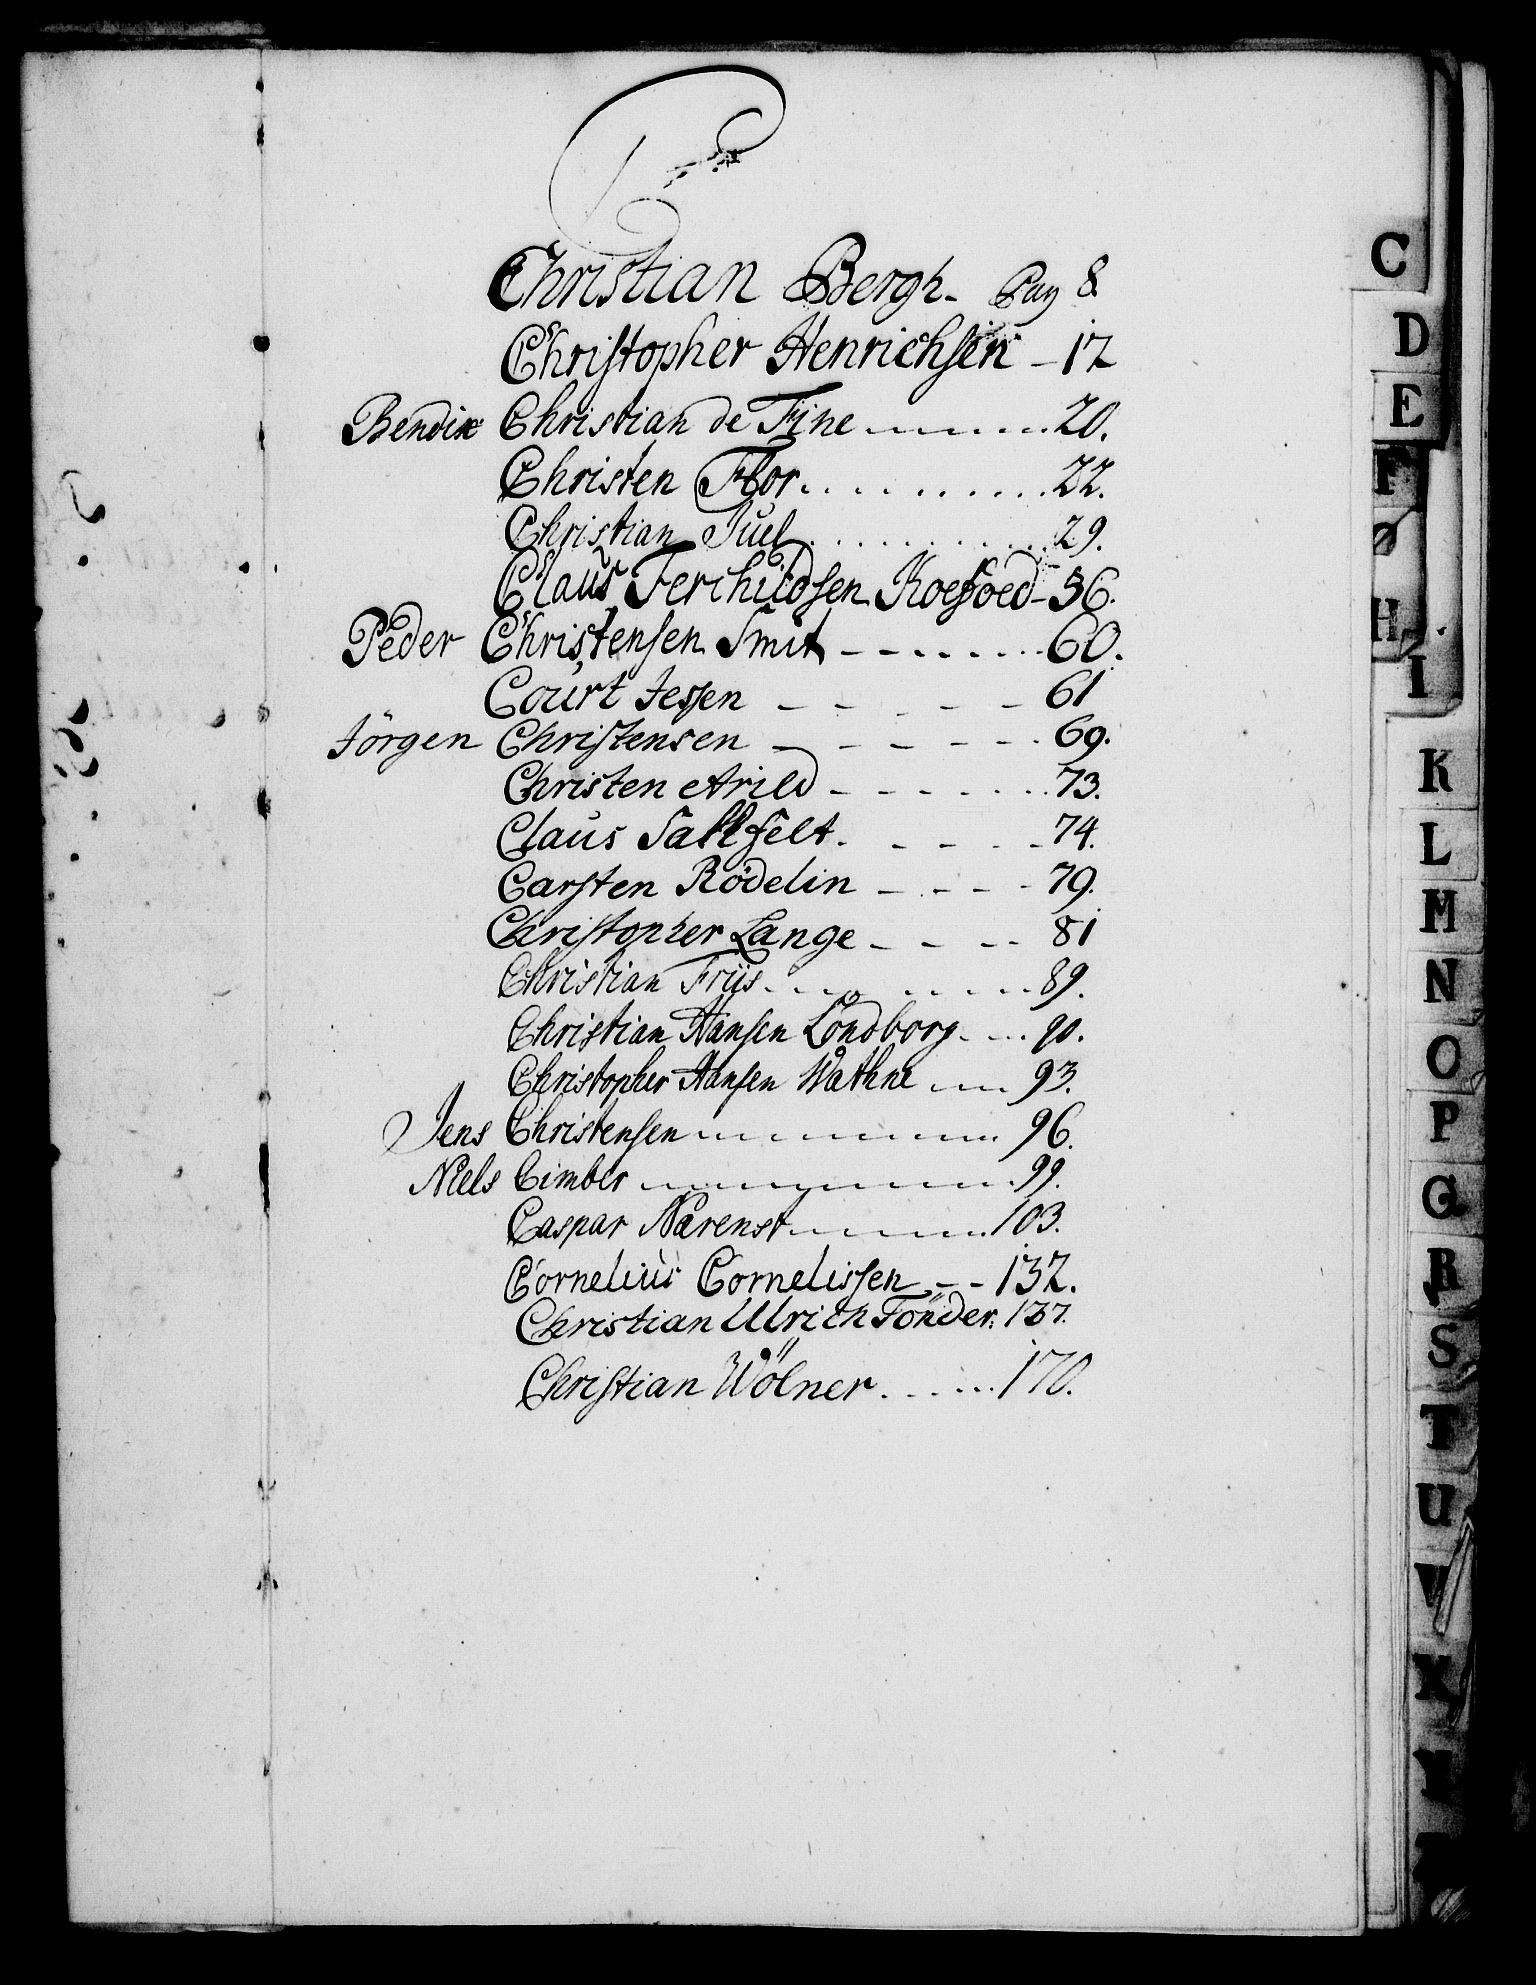 C
Christian Bergh. Pag 8.
Christopher Henrichsen 12
Bendix Christian de Fine 20.
Christen Flor 22.
Christian Juel 29.
Claus Ferchildsen Koefoed 56.
Peder Christensen Smit 60.
Court Jessen 61
Jörgen Christensen 69.
Christen Arild 73.
Claus Sallfelt. 74.
Carsten Rödelin 79.
Christopher Lange 81
Christian Friis 89.
Christian Hansen Londborg 90.
Christopher Hansen Wathne 93.
Jens Christensen 96.
Niels Cimber 99.
Caspar Närenst 103.
Cornelius Cornelissen 132.
Christian Ulrich Fönder. 137.
Christian Wölner 170.
C
D
E
F
H
I
K
L
M
N
O
P
Q
R
S
T
U
V
X